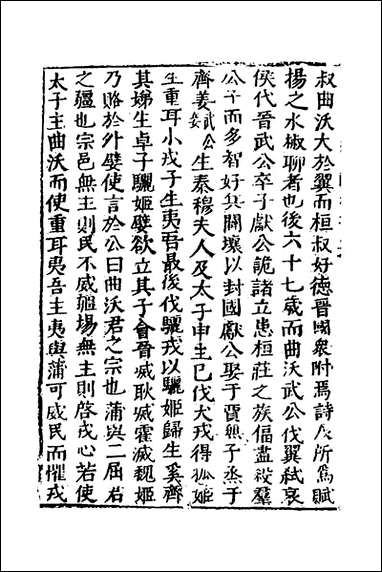 叔曲沃大於翼而桓叔好德晉國衆附焉詩人所爲賦
揚之水椒聊者也後六十七歲而曲沃武公伐翼弑哀
侯代晉武公卒子獻公詭諸立患桓莊之族偪盡殺羣
公子而多智好兵闢壤以封國獻公娶于賈無子烝于
齊姜武公妾生秦穆夫人及太子申生已伐犬戎得狐姬
生重耳小戎子生夷吾最後伐驪戎以驪姬歸生奚齊
其娣生卓子驪姬嬖欲立其子會晉滅耿滅霍滅魏姬
乃賂於外嬖使言於公曰曲沃君之宗也蒲與二屈君
之疆也宗邑無主則民不威疆埸無主則啓戎心若使
太子主曲沃而使重耳夷吾主夷與蒲可威民而懼戎